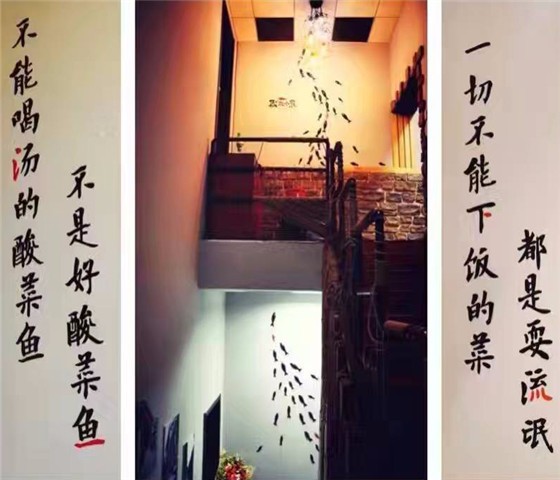 不能喝汤的酸菜鱼
不是好酸菜鱼
一切不能下饭的菜
都是耍流氓